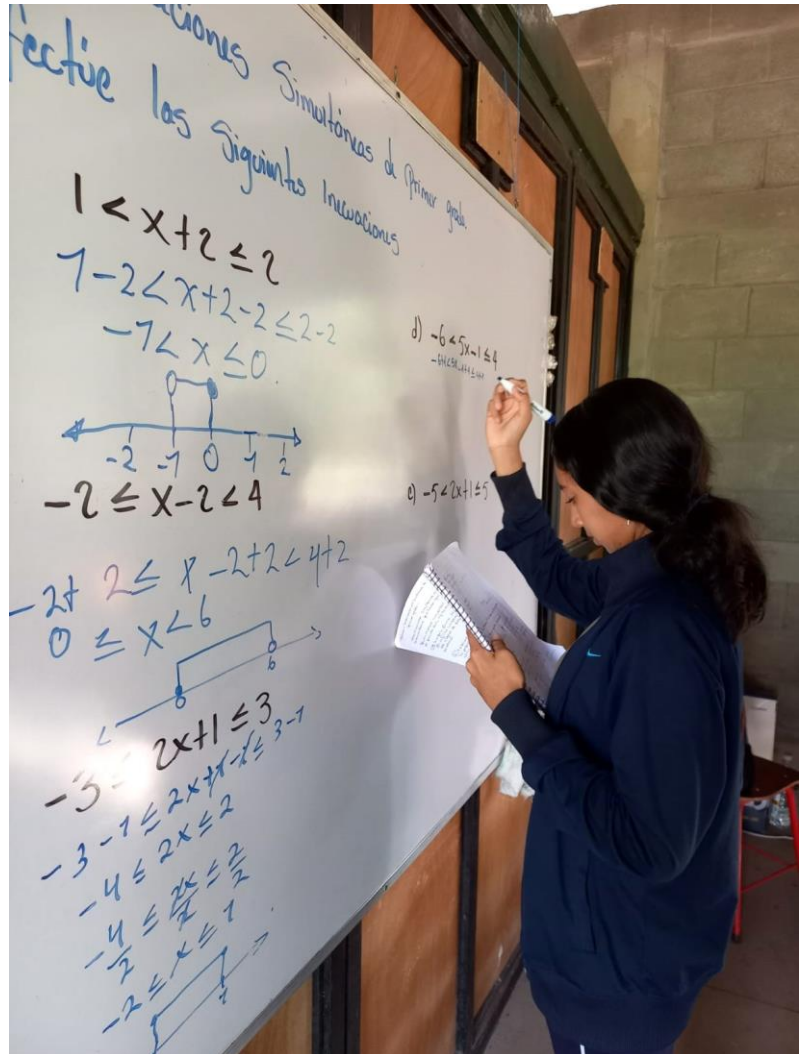 Simultáneas de Primer grado.
las Siguientes Inecuaciones
1 < x+2 ≤ 2
1-2 < x+2-2 ≤ 2-2
-1 < x ≤ 0
-2 -1 0 1 2
-2 ≤ x-2 < 4
-2+ 2 ≤ x -2+2 < 4+2
0 ≤ x < 6
0 6
-3 ≤ 2x+1 ≤ 3
-3-1 ≤ 2x+1-1 ≤ 3-1
-4 ≤ 2x ≤ 2
-4/2 ≤ 2x/2 ≤ 2/2
-2 ≤ x ≤ 1
d) -6 < 5x-1 ≤ 4
-6+1 < 5x-1+1 ≤ 4+1
e) -5 < 2x+1 ≤ 5